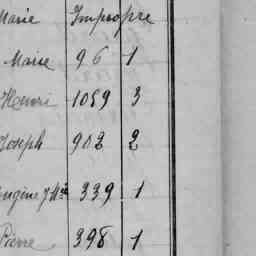 Marie Impropre
Marie 96 1
Henri 1059 3
Joseph 902 2
Eugène J. Mie 339 1
Pierre 398 1